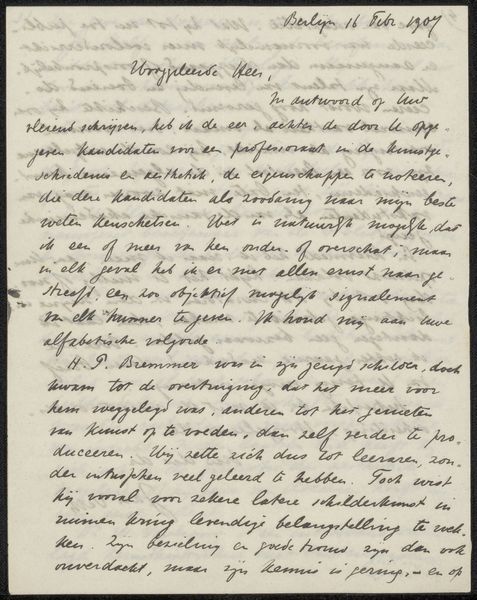 Berlijn 16 Febr. 1907
Weledelgeleerde Heer,
In antwoord op Uw
vleiend schrijven, heb ik de eer, achter de door U opge-
geven kandidaten voor een professoraat in de kunstge-
schiedenis en aesthetik, de eigenschappen te noteeren,
die deze kandidaten als zoodanig naar mijn beste
weten kenschetsen. Het is natuurlijk mogelijk, dat
ik een of meer van hen onder- of overschat; maar
in elk geval heb ik er met allen ernst naar ge-
streefd, een zoo objectief mogelijk signalement
van elk hunner te geven. Ik houd mij aan Uwe
alfabetische volgorde.
H. P. Bremmer was in zijn jeugd schilder, doch
kwam tot de overtuiging, dat het meer voor
hem weggelegd was, anderen tot het genieten
van kunst op te voeden, dan zelf verder te pro-
duceeren. Hij zette zich dus tot leeraren, zon-
der intusschen veel geleerd te hebben. Toch wist
hij vooral voor zekere latere schilderkunst in
ruimen kring levendige belangstelling te wek-
ken. Zijn bezieling en goede trouw zijn dan ook
onverdacht, maar zijn kennis is gering, – en op